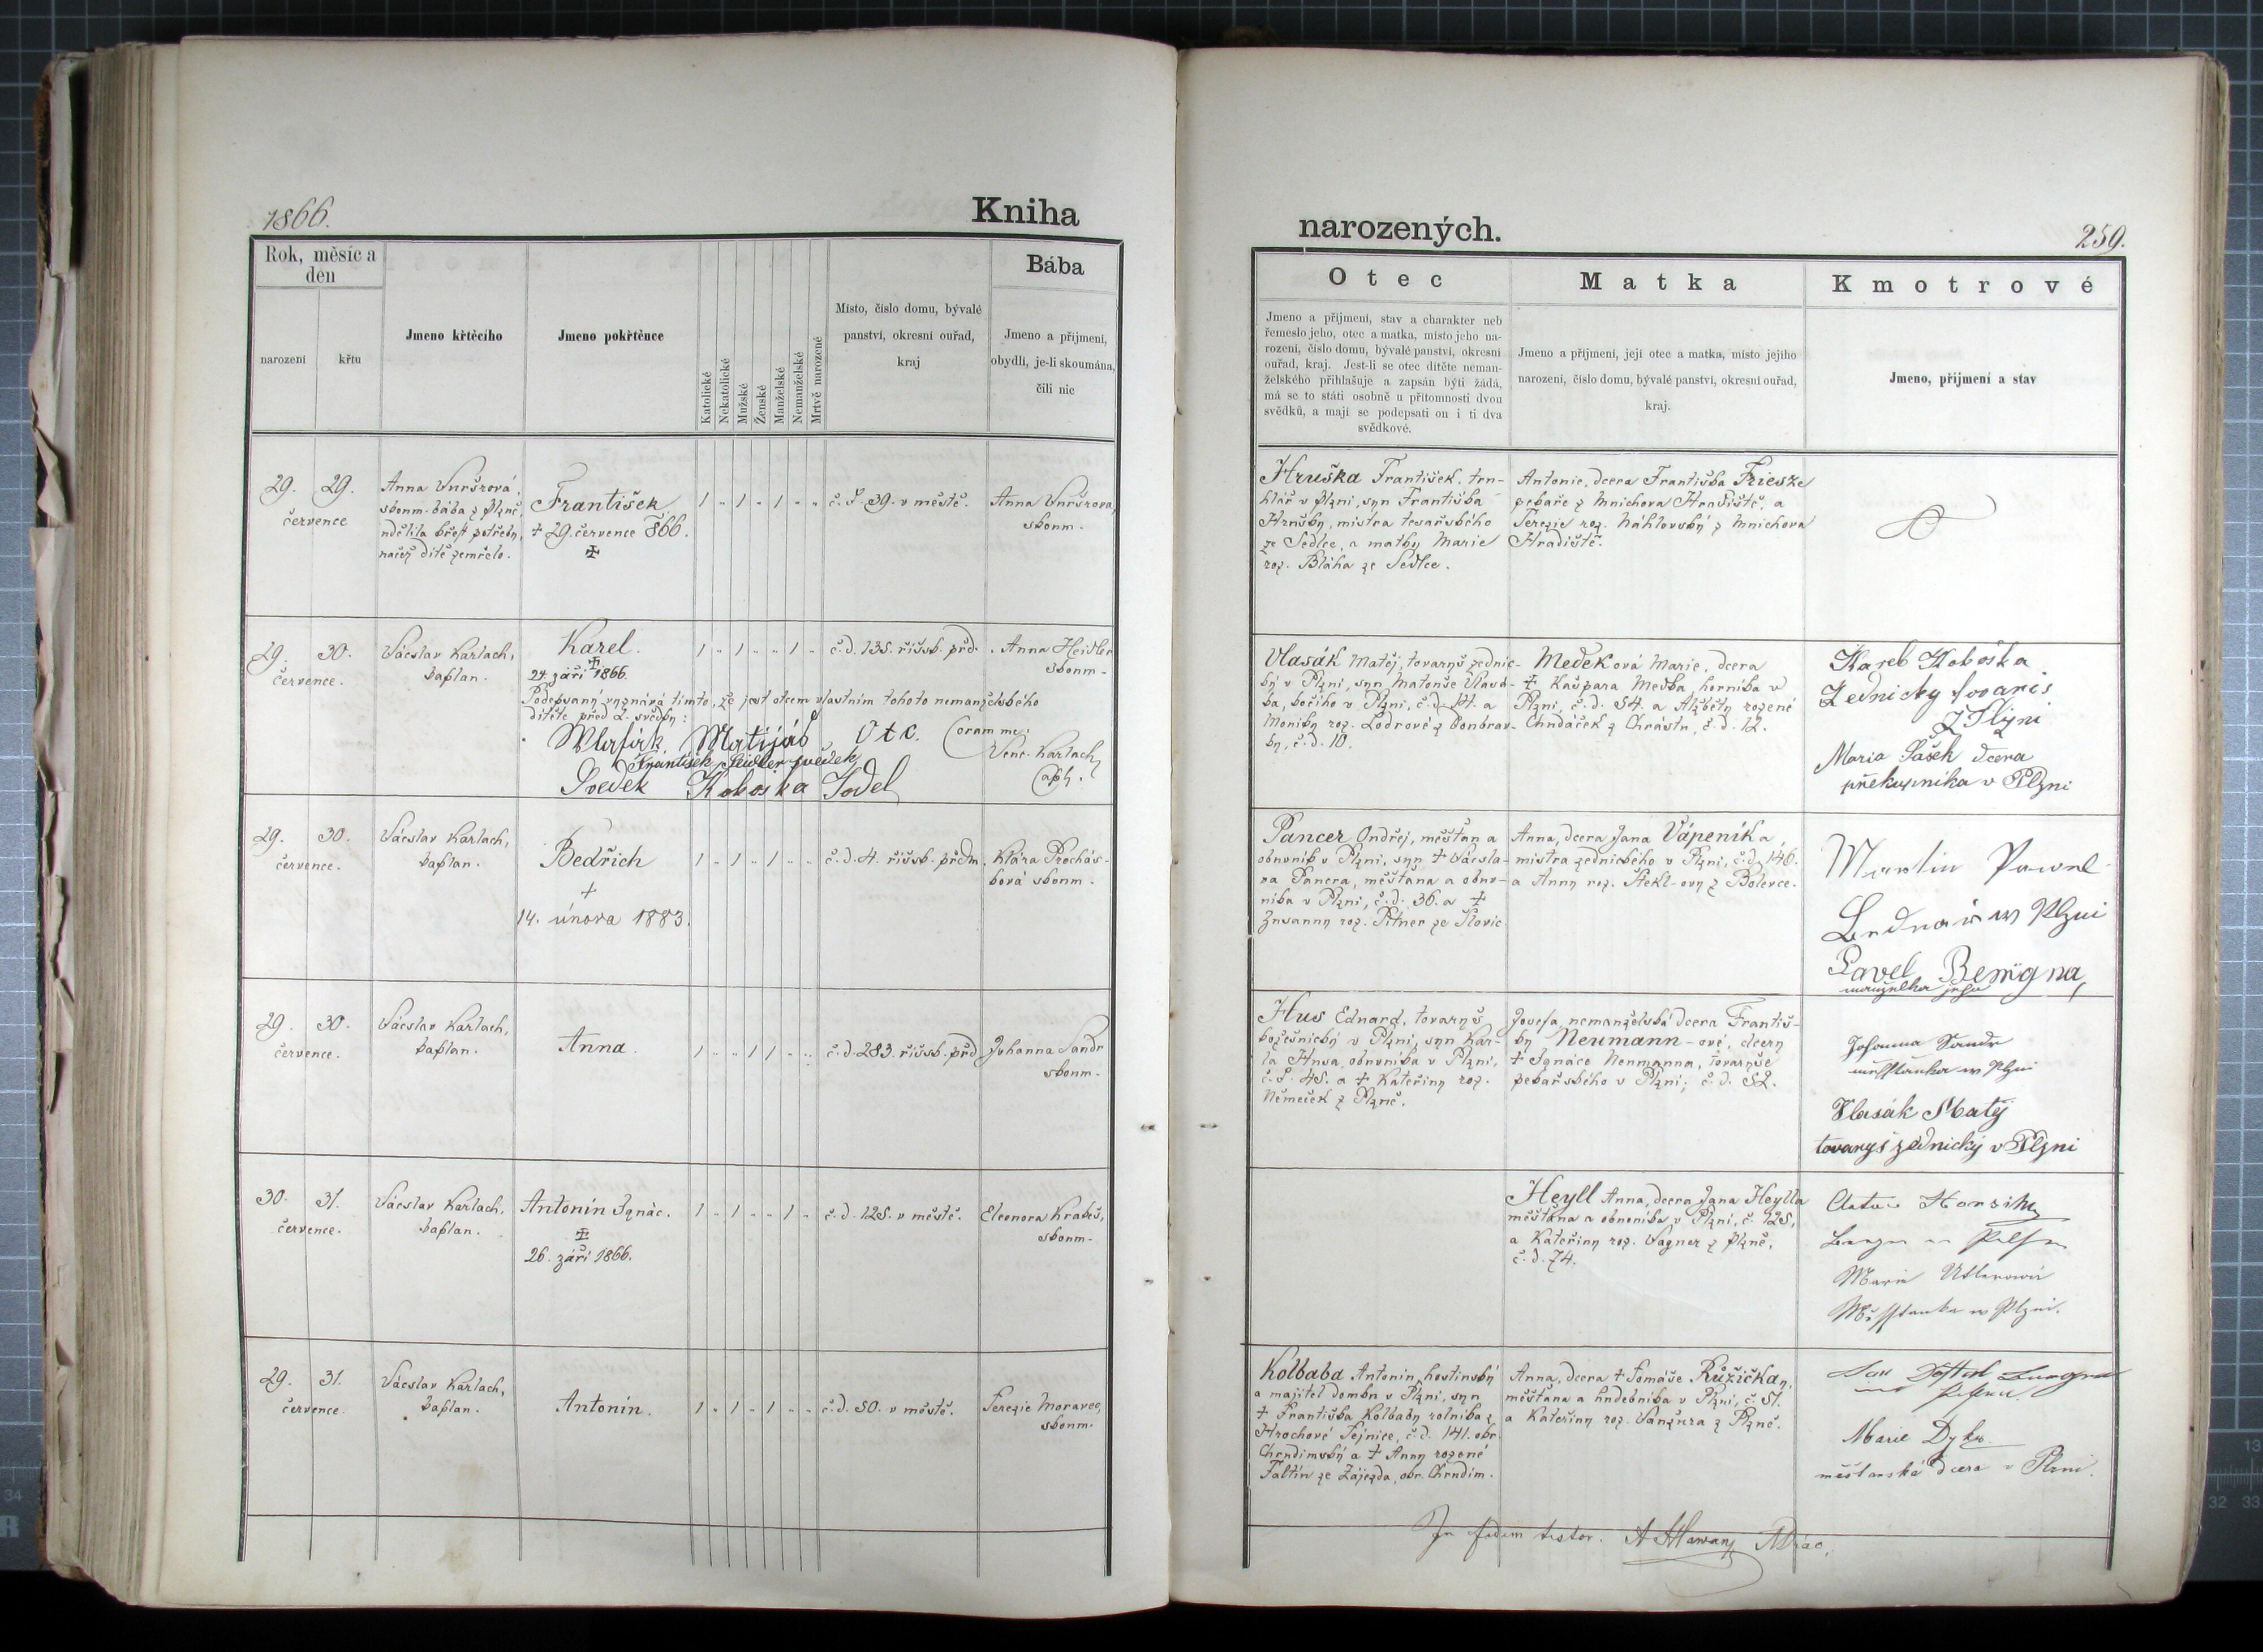 1866.
Kniha
Rok, měsíc a
den
narození
křtu
Jmeno křtěcího
Jmeno pokřtěnce
Katolické
Nekatolické
Mužské
Ženské
Manželské
Nemanželské
Mrtvě narozené
Místo, číslo domu, bývalé
panství, okresní ouřad,
kraj
Bába
Jmeno a příjmení,
obydlí, je-li skoumána,
čili nic
29. 29.
července
Anna
bába z Plzně,
udělila křest potřeby,
načež dítě zemřelo.
František
+ 29. července 866.
1 „ 1 „ 1 „ „
č. d. 39. v městě.
Anna
skoum.
29. 30.
července.
Václav Karlach,
kaplan.
Karel.
24. září 1866.
1 „ 1 „ „ 1 „
č. d. 135. říšsk. před.
Anna Heidler
skoum.
Podepsaný vyznává tímto, že jest otcem vlastním tohoto nemanželského
dítěte před 2. svědky:
Wlasák Matijáš Otc.
Coram me:
Venc. Karlach
František Seidler svědek
Svedek Koboska Jodel
29. 30.
července.
Václav Karlach,
kaplan.
Bedřich
+
14. února 1883.
1 „ 1 „ 1 „ „
č. d. 4. říšsk. předm.
Klára Procház-
ková skoum.
29. 30.
července.
Václav Karlach,
kaplan.
Anna.
1 „ „ 1 1 „ „
č. d. 283. říšsk. před
Johanna Sandr
skoum.
30. 31.
července.
Václav Karlach,
kaplan.
Antonín Ignác.
26. září 1866.
1 „ 1 „ „ 1 „
č. d. 125. v městě.
Eleonora Krabeš,
skoum.
29. 31.
července.
Václav Karlach,
kaplan.
Antonín.
1 „ 1 „ 1 „ „
č. d. 50. v městě.
Terezie Moravec,
skoum.
narozených.
259.
Otec
Jmeno a příjmení, stav a charakter neb
řemeslo jeho, otec a matka, místo jeho na-
rození, číslo domu, bývalé panství, okresní
ouřad, kraj. Jest-li se otec dítěte neman-
želského přihlašuje a zapsán býti žádá,
má se to státi osobně u přítomnosti dvou
svědků, a mají se podepsati on i ti dva
svědkové.
Matka
Jmeno a příjmení, její otec a matka, místo jejího
narození, číslo domu, bývalé panství, okresní ouřad,
kraj.
Kmotrové
Jmeno, příjmení a stav
Hruška František, tru-
hlář v Plzni, syn Františka
Hrušky, mistra tesařského
ze Sedlce, a matky Marie
roz. Bláha ze Sedlce.
Antonie, dcera Františka Friesze
pekaře z Mnichova Hradiště, a
Terezie roz. Náhlovský z Mnichova
Hradiště.
Vlasák Matěj, tovaryš zednic-
ký v Plzni, syn Matouše Vlasá-
ka, kočího v Plzni, č. d. 14. a
Moniky roz. Lodrové z Doubrav-
ky, č. d. 10.
Medeková Marie, dcera
+ Kašpara Medka, horníka v
Plzni, č. d. 54. a Alžběty rozené
Chudáček z Chrástu, č. d. 12.
Kareb Koboska
Zednicky tovaris
z Plzni
Maria Sašek dcera
překupníka v Plzni
Pancer Ondřej, měšťan a
obuvník v Plzni, syn + Václa-
va Pancra, měšťana a obuv-
níka v Plzni, č. d. 36. a +
Zusanny roz. Pitner ze Štovic.
Anna, dcera Jana Vápeníka,
mistra zednického v Plzni, č. d. 146.
a Anny roz. Štekl-ovy z Bolevce.
Martin Pawel
w Plzni
Pavel Benigna,
manželka jeho
Hus Eduard, tovaryš
kožešnický v Plzni, syn Kar-
la Husa, obuvníka v Plzni,
č. d. 45. a + Kateřiny roz.
Němeček z Plzně.
Josefa, nemanželská dcera Františ-
ky Neumann-ové, dcery
+ Ignáce Neumanna, tovaryše
pekařského v Plzni, č. d. 52.
Johanna Sandr
w Plzni
Vlasák Matěj
tovaryš zednický v Plzni
Heyll Anna, dcera Jana Heylla
měšťana a obuvníka v Plzni, č. 125,
a Kateřiny roz. Vagner z Plzně,
č. d. 74.
Marie
w Plzni.
Kolbaba Antonín, hostinský
a majitel domku v Plzni, syn
+ Františka Kolbaby rolníka z
Hrochové Tejnice, č. d. 141. okr.
Chrudimský a + Anny rozené
Faltín ze Zájezda, okr. Chrudim.
Anna, dcera + Tomáše Růžičky,
měšťana a hudebníka v Plzni, č. 51.
a Kateřiny roz. Vanžura z Plzně.
Marie Dyk
měšťanská dcera v Plzni.
In fidem testor.